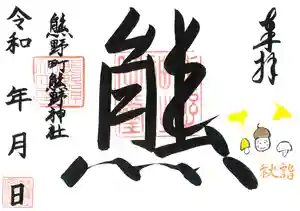 奉拝
秋詣
熊
熊野町熊野神社
令和 年 月 日